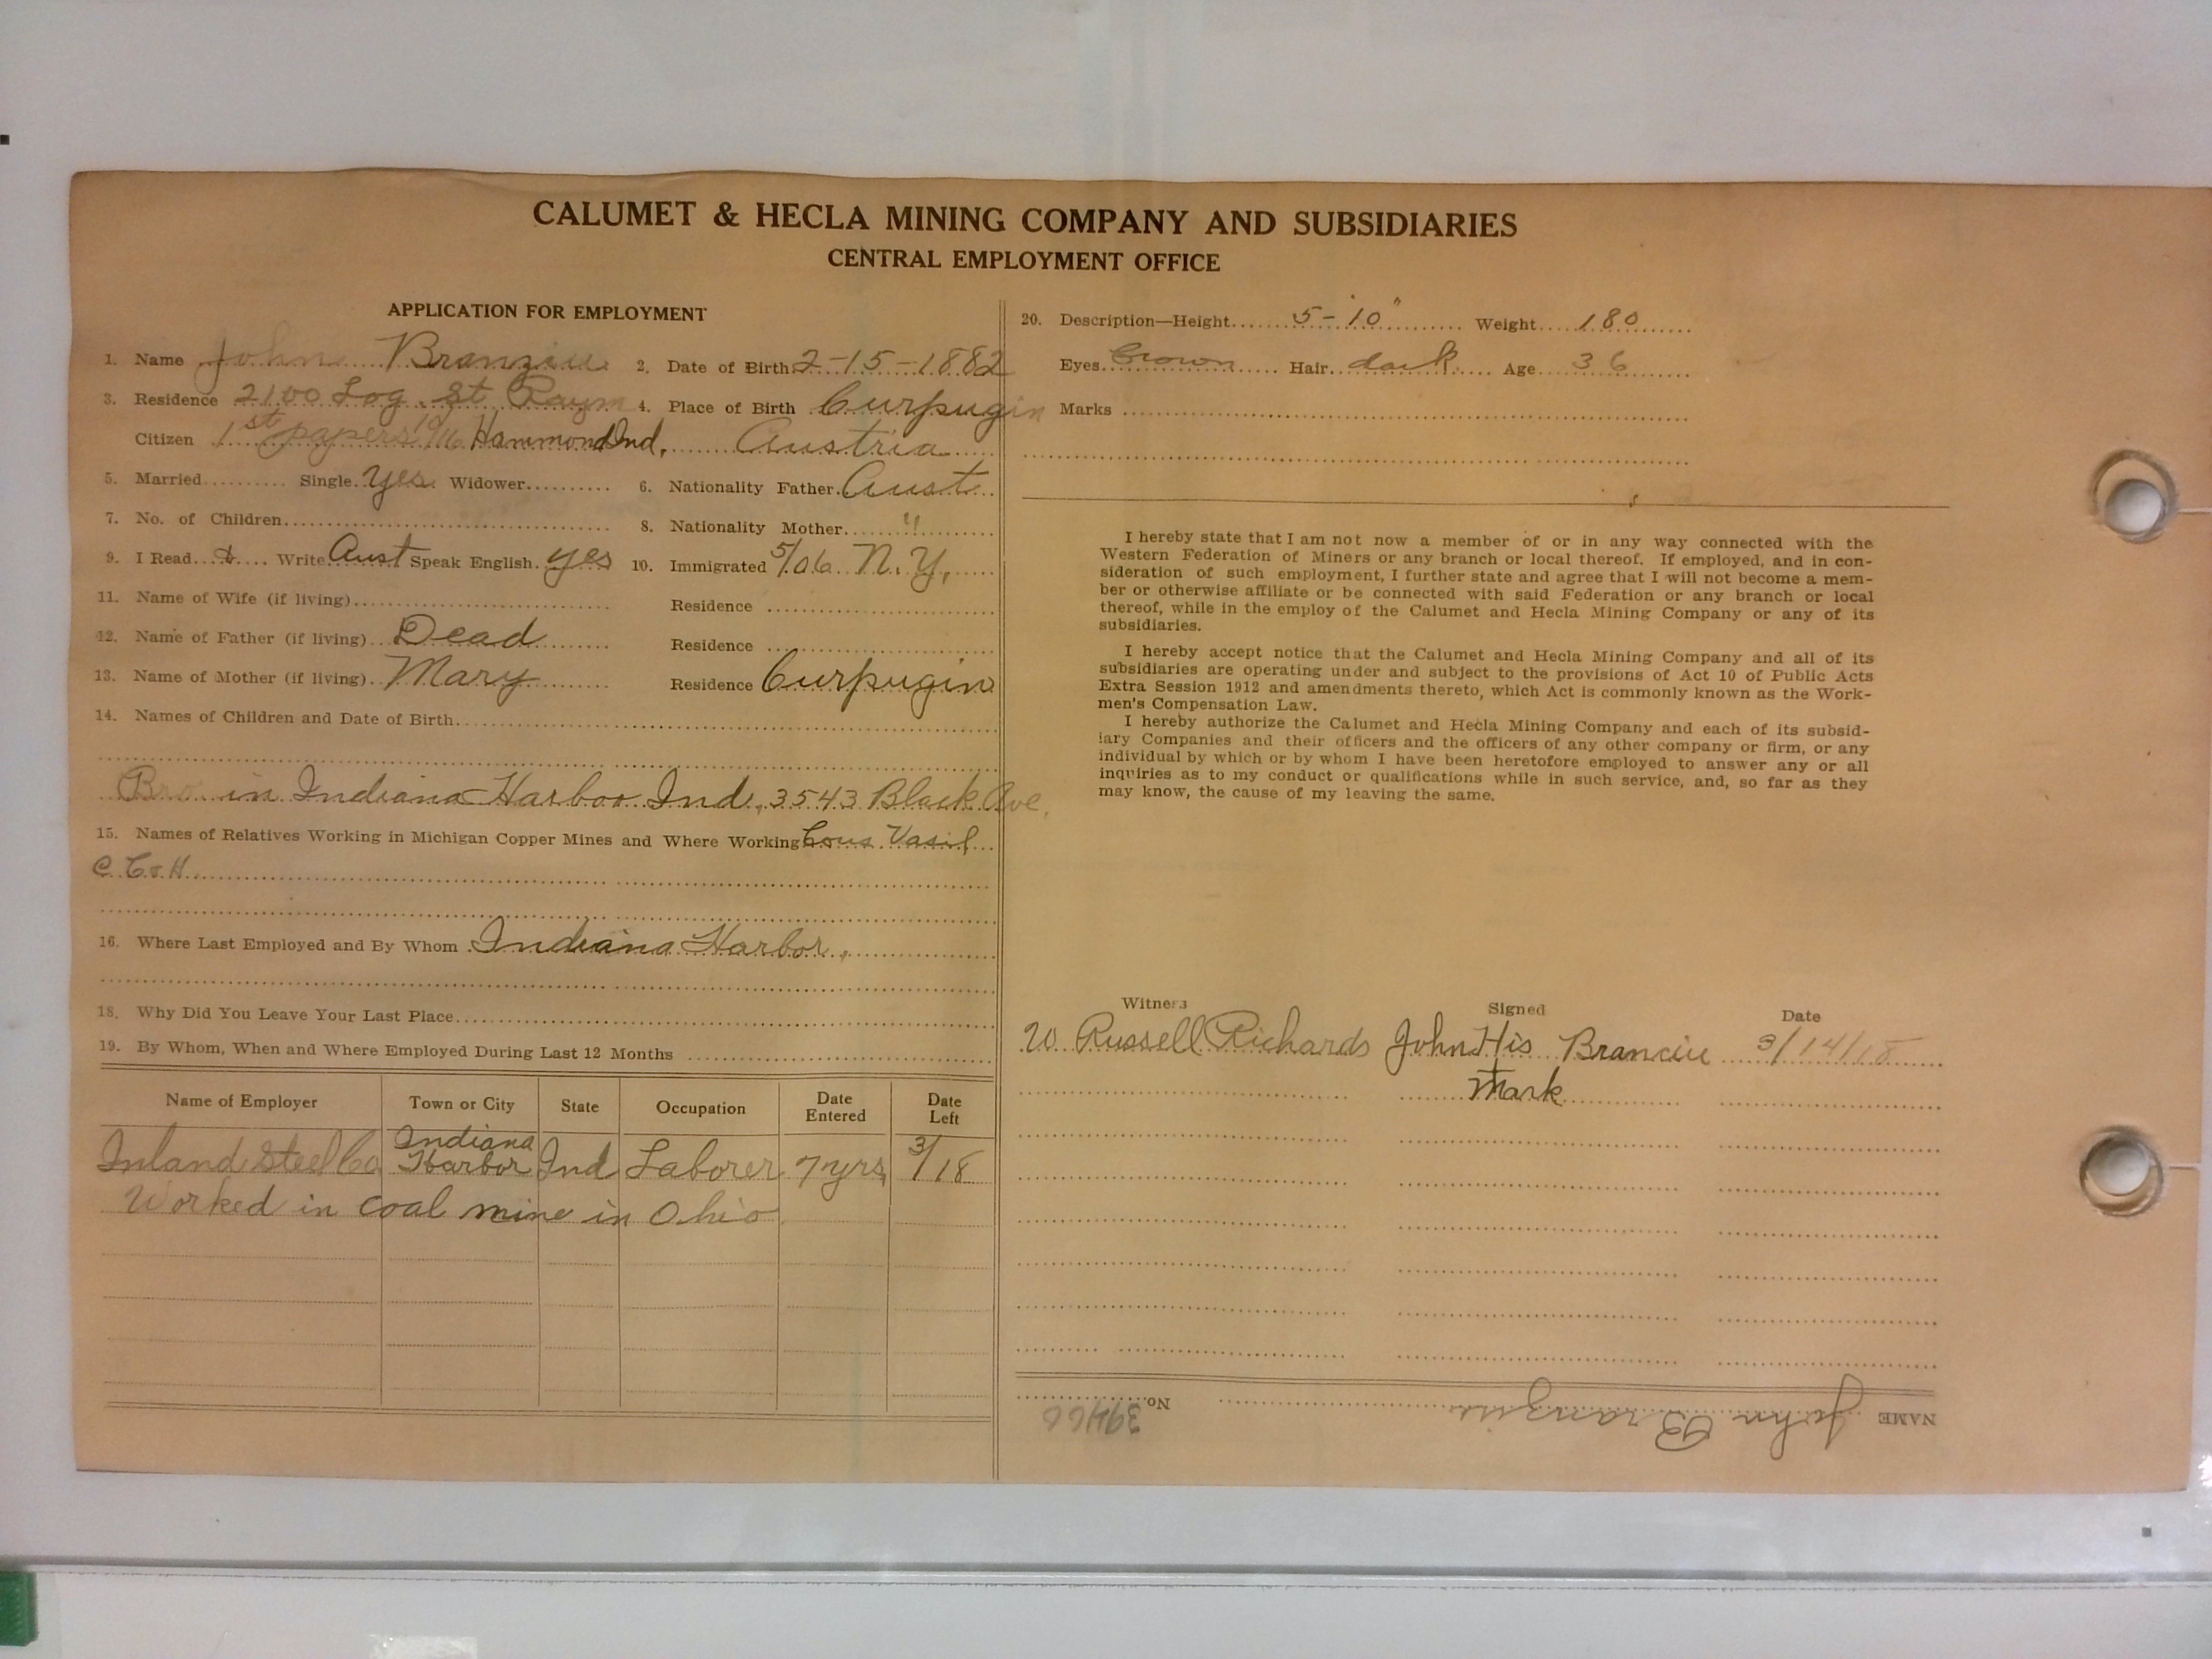 CALUMET & HECLA MINING COMPANY AND SUBSIDIARIES
CENTRAL EMPLOYMENT OFFICE
APPLICATION FOR EMPLOYMENT
1. Name John Branziu 2. Date of Birth 2-15-1882
3. Residence 2100 Log. St Raym 4. Place of Birth Curpugin
Citizen 1st papers 1916 Hammond Ind, Austria
5. Married Single Yes Widower 6. Nationality Father Aust
7. No. of Children 8. Nationality Mother "
9. I Read & Write Aust Speak English yes 10. Immigrated 5/06 N.Y,
11. Name of Wife (if living) Residence
12. Name of Father (if living) Dead Residence
13. Name of Mother (if living) Mary Residence Curpugin
14. Names of Children and Date of Birth
Bro in Indiana Harbor Ind, 3543 Black Ave.
15. Names of Relatives Working in Michigan Copper Mines and Where Working Cous Vasil
@ C & H
16. Where Last Employed and By Whom Indiana Harbor,
18. Why Did You Leave Your Last Place
19. By Whom, When and Where Employed During Last 12 Months
Name of Employer Town or City State Occupation Date Entered Date Left
Inland Steel Co Indiana Harbor Ind Laborer 7 yrs, 3/18
Worked in coal mine in Ohio
20. Description—Height 5-10" Weight 180
Eyes brown Hair dark Age 36
Marks
I hereby state that I am not now a member of or in any way connected with the
Western Federation of Miners or any branch or local thereof. If employed, and in con-
sideration of such employment, I further state and agree that I will not become a mem-
ber or otherwise affiliate or be connected with said Federation or any branch or local
thereof, while in the employ of the Calumet and Hecla Mining Company or any of its
subsidiaries.
I hereby accept notice that the Calumet and Hecla Mining Company and all of its
subsidiaries are operating under and subject to the provisions of Act 10 of Public Acts
Extra Session 1912 and amendments thereto, which Act is commonly known as the Work-
men's Compensation Law.
I hereby authorize the Calumet and Hecla Mining Company and each of its subsid-
iary Companies and their officers and the officers of any other company or firm, or any
individual by which or by whom I have been heretofore employed to answer any or all
inquiries as to my conduct or qualifications while in such service, and, so far as they
may know, the cause of my leaving the same.
Witness Signed Date
W Russell Richards John His Branciu 3/14/18
Mark
NAME John Branziu No. 39466